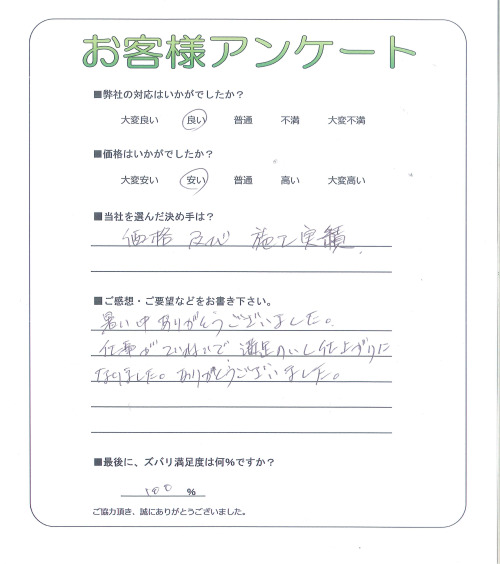 お客様アンケート
■弊社の対応はいかがでしたか？
大変良い 良い 普通 不満 大変不満
■価格はいかがでしたか？
大変安い 安い 普通 高い 大変高い
■当社を選んだ決め手は？
価格 及び 施工実績
■ご感想・ご要望などをお書き下さい。
暑い中ありがとうございました。
仕事がていねいで 満足のいく仕上がりに
なりました。ありがとうございました。
■最後に、ズバリ満足度は何％ですか？
100 ％
ご協力頂き、誠にありがとうございました。